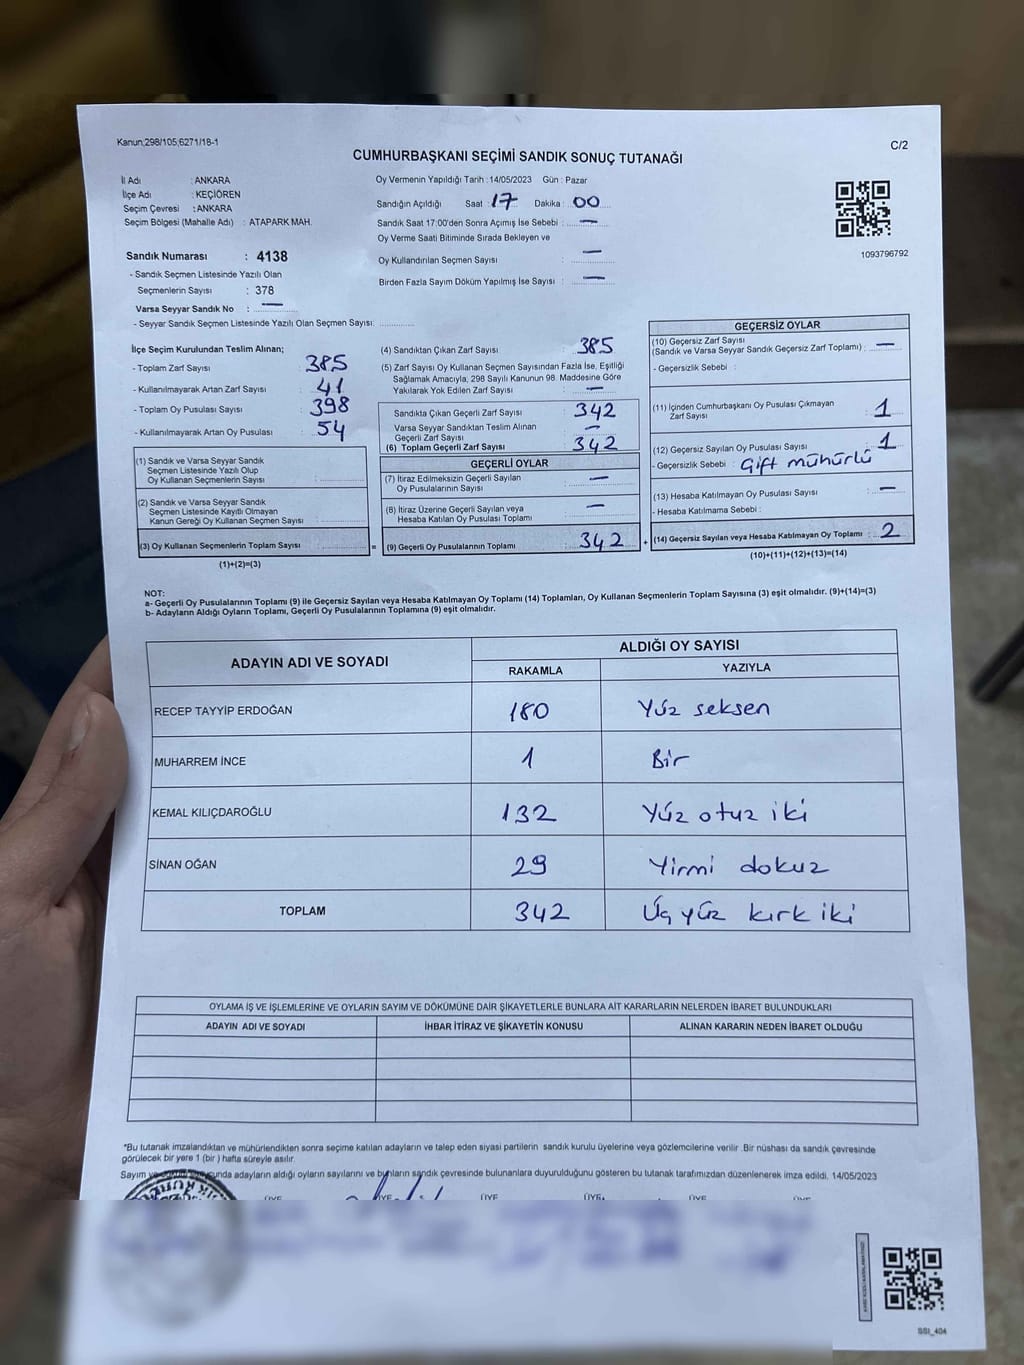 Kanun;298/105,6271/18-1
C/2
CUMHURBAŞKANI SEÇİMİ SANDIK SONUÇ TUTANAĞI
İl Adı : ANKARA
İlçe Adı : KEÇİÖREN
Seçim Çevresi : ANKARA
Seçim Bölgesi (Mahalle Adı) : ATAPARK MAH.
Oy Vermenin Yapıldığı Tarih : 14/05/2023 Gün : Pazar
Sandığın Açıldığı Saat : 17 Dakika : 00
Sandık Saat 17:00'den Sonra Açımış İse Sebebi : —
Oy Verme Saati Bitiminde Sırada Bekleyen ve
Oy Kullandırılan Seçmen Sayısı : —
Birden Fazla Sayım Döküm Yapılmış İse Sayısı : —
1093796792
Sandık Numarası : 4138
- Sandık Seçmen Listesinde Yazılı Olan
Seçmenlerin Sayısı : 378
Varsa Seyyar Sandık No : —
- Seyyar Sandık Seçmen Listesinde Yazılı Olan Seçmen Sayısı:
İlçe Seçim Kurulundan Teslim Alınan;
- Toplam Zarf Sayısı : 385
- Kullanılmayarak Artan Zarf Sayısı : 41
- Toplam Oy Pusulası Sayısı : 398
- Kullanılmayarak Artan Oy Pusulası : 54
(1) Sandık ve Varsa Seyyar Sandık
Seçmen Listesinde Yazılı Olup
Oy Kullanan Seçmenlerin Sayısı :
(2) Sandık ve Varsa Seyyar Sandık
Seçmen Listesinde Kayıtlı Olmayan
Kanun Gereği Oy Kullanan Seçmen Sayısı :
(3) Oy Kullanan Seçmenlerin Toplam Sayısı :
(1)+(2)=(3)
(4) Sandıktan Çıkan Zarf Sayısı : 385
(5) Zarf Sayısı Oy Kullanan Seçmen Sayısından Fazla İse, Eşitliği
Sağlamak Amacıyla; 298 Sayılı Kanunun 98. Maddesine Göre
Yakılarak Yok Edilen Zarf Sayısı : —
Sandıkta Çıkan Geçerli Zarf Sayısı : 342
Varsa Seyyar Sandıktan Teslim Alınan
Geçerli Zarf Sayısı : —
(6) Toplam Geçerli Zarf Sayısı : 342
GEÇERLİ OYLAR
(7) İtiraz Edilmeksizin Geçerli Sayılan
Oy Pusulalarının Sayısı : —
(8) İtiraz Üzerine Geçerli Sayılan veya
Hesaba Katılan Oy Pusulası Toplamı : —
= (9) Geçerli Oy Pusulalarının Toplamı : 342
GEÇERSİZ OYLAR
(10) Geçersiz Zarf Sayısı
(Sandık ve Varsa Seyyar Sandık Geçersiz Zarf Toplamı) : —
- Geçersizlik Sebebi :
(11) İçinden Cumhurbaşkanı Oy Pusulası Çıkmayan
Zarf Sayısı : 1
(12) Geçersiz Sayılan Oy Pusulası Sayısı : 1
- Geçersizlik Sebebi : Çift mühürlü
(13) Hesaba Katılmayan Oy Pusulası Sayısı : —
- Hesaba Katılmama Sebebi :
+ (14) Geçersiz Sayılan veya Hesaba Katılmayan Oy Toplamı : 2
(10)+(11)+(12)+(13)=(14)
NOT:
a- Geçerli Oy Pusulalarının Toplamı (9) ile Geçersiz Sayılan veya Hesaba Katılmayan Oy Toplamı (14) Toplamları, Oy Kullanan Seçmenlerin Toplam Sayısına (3) eşit olmalıdır. (9)+(14)=(3)
b- Adayların Aldığı Oyların Toplamı, Geçerli Oy Pusulalarının Toplamına (9) eşit olmalıdır.
ADAYIN ADI VE SOYADI
ALDIĞI OY SAYISI
RAKAMLA YAZIYLA
RECEP TAYYİP ERDOĞAN 180 Yüz seksen
MUHARREM İNCE 1 Bir
KEMAL KILIÇDAROĞLU 132 Yüz otuz iki
SİNAN OĞAN 29 Yirmi dokuz
TOPLAM 342 Üç yüz kırk iki
OYLAMA İŞ VE İŞLEMLERİNE VE OYLARIN SAYIM VE DÖKÜMÜNE DAİR ŞİKAYETLERLE BUNLARA AİT KARARLARIN NELERDEN İBARET BULUNDUKLARI
ADAYIN ADI VE SOYADI İHBAR İTİRAZ VE ŞİKAYETİN KONUSU ALINAN KARARIN NEDEN İBARET OLDUĞU
*Bu tutanak imzalandıktan ve mühürlendikten sonra seçime katılan adayların ve talep eden siyasi partilerin sandık kurulu üyelerine veya gözlemcilerine verilir. Bir nüshası da sandık çevresinde
görülecek bir yere 1 (bir) hafta süreyle asılır.
Sayım ve adayların aldığı oyların sayılarını ve bunların sandık çevresinde bulunanlara duyurulduğunu gösteren bu tutanak tarafımızdan düzenlenerek imza edildi, 14/05/2023
ÜYE ÜYE ÜYE ÜYE ÜYE
SSI_404